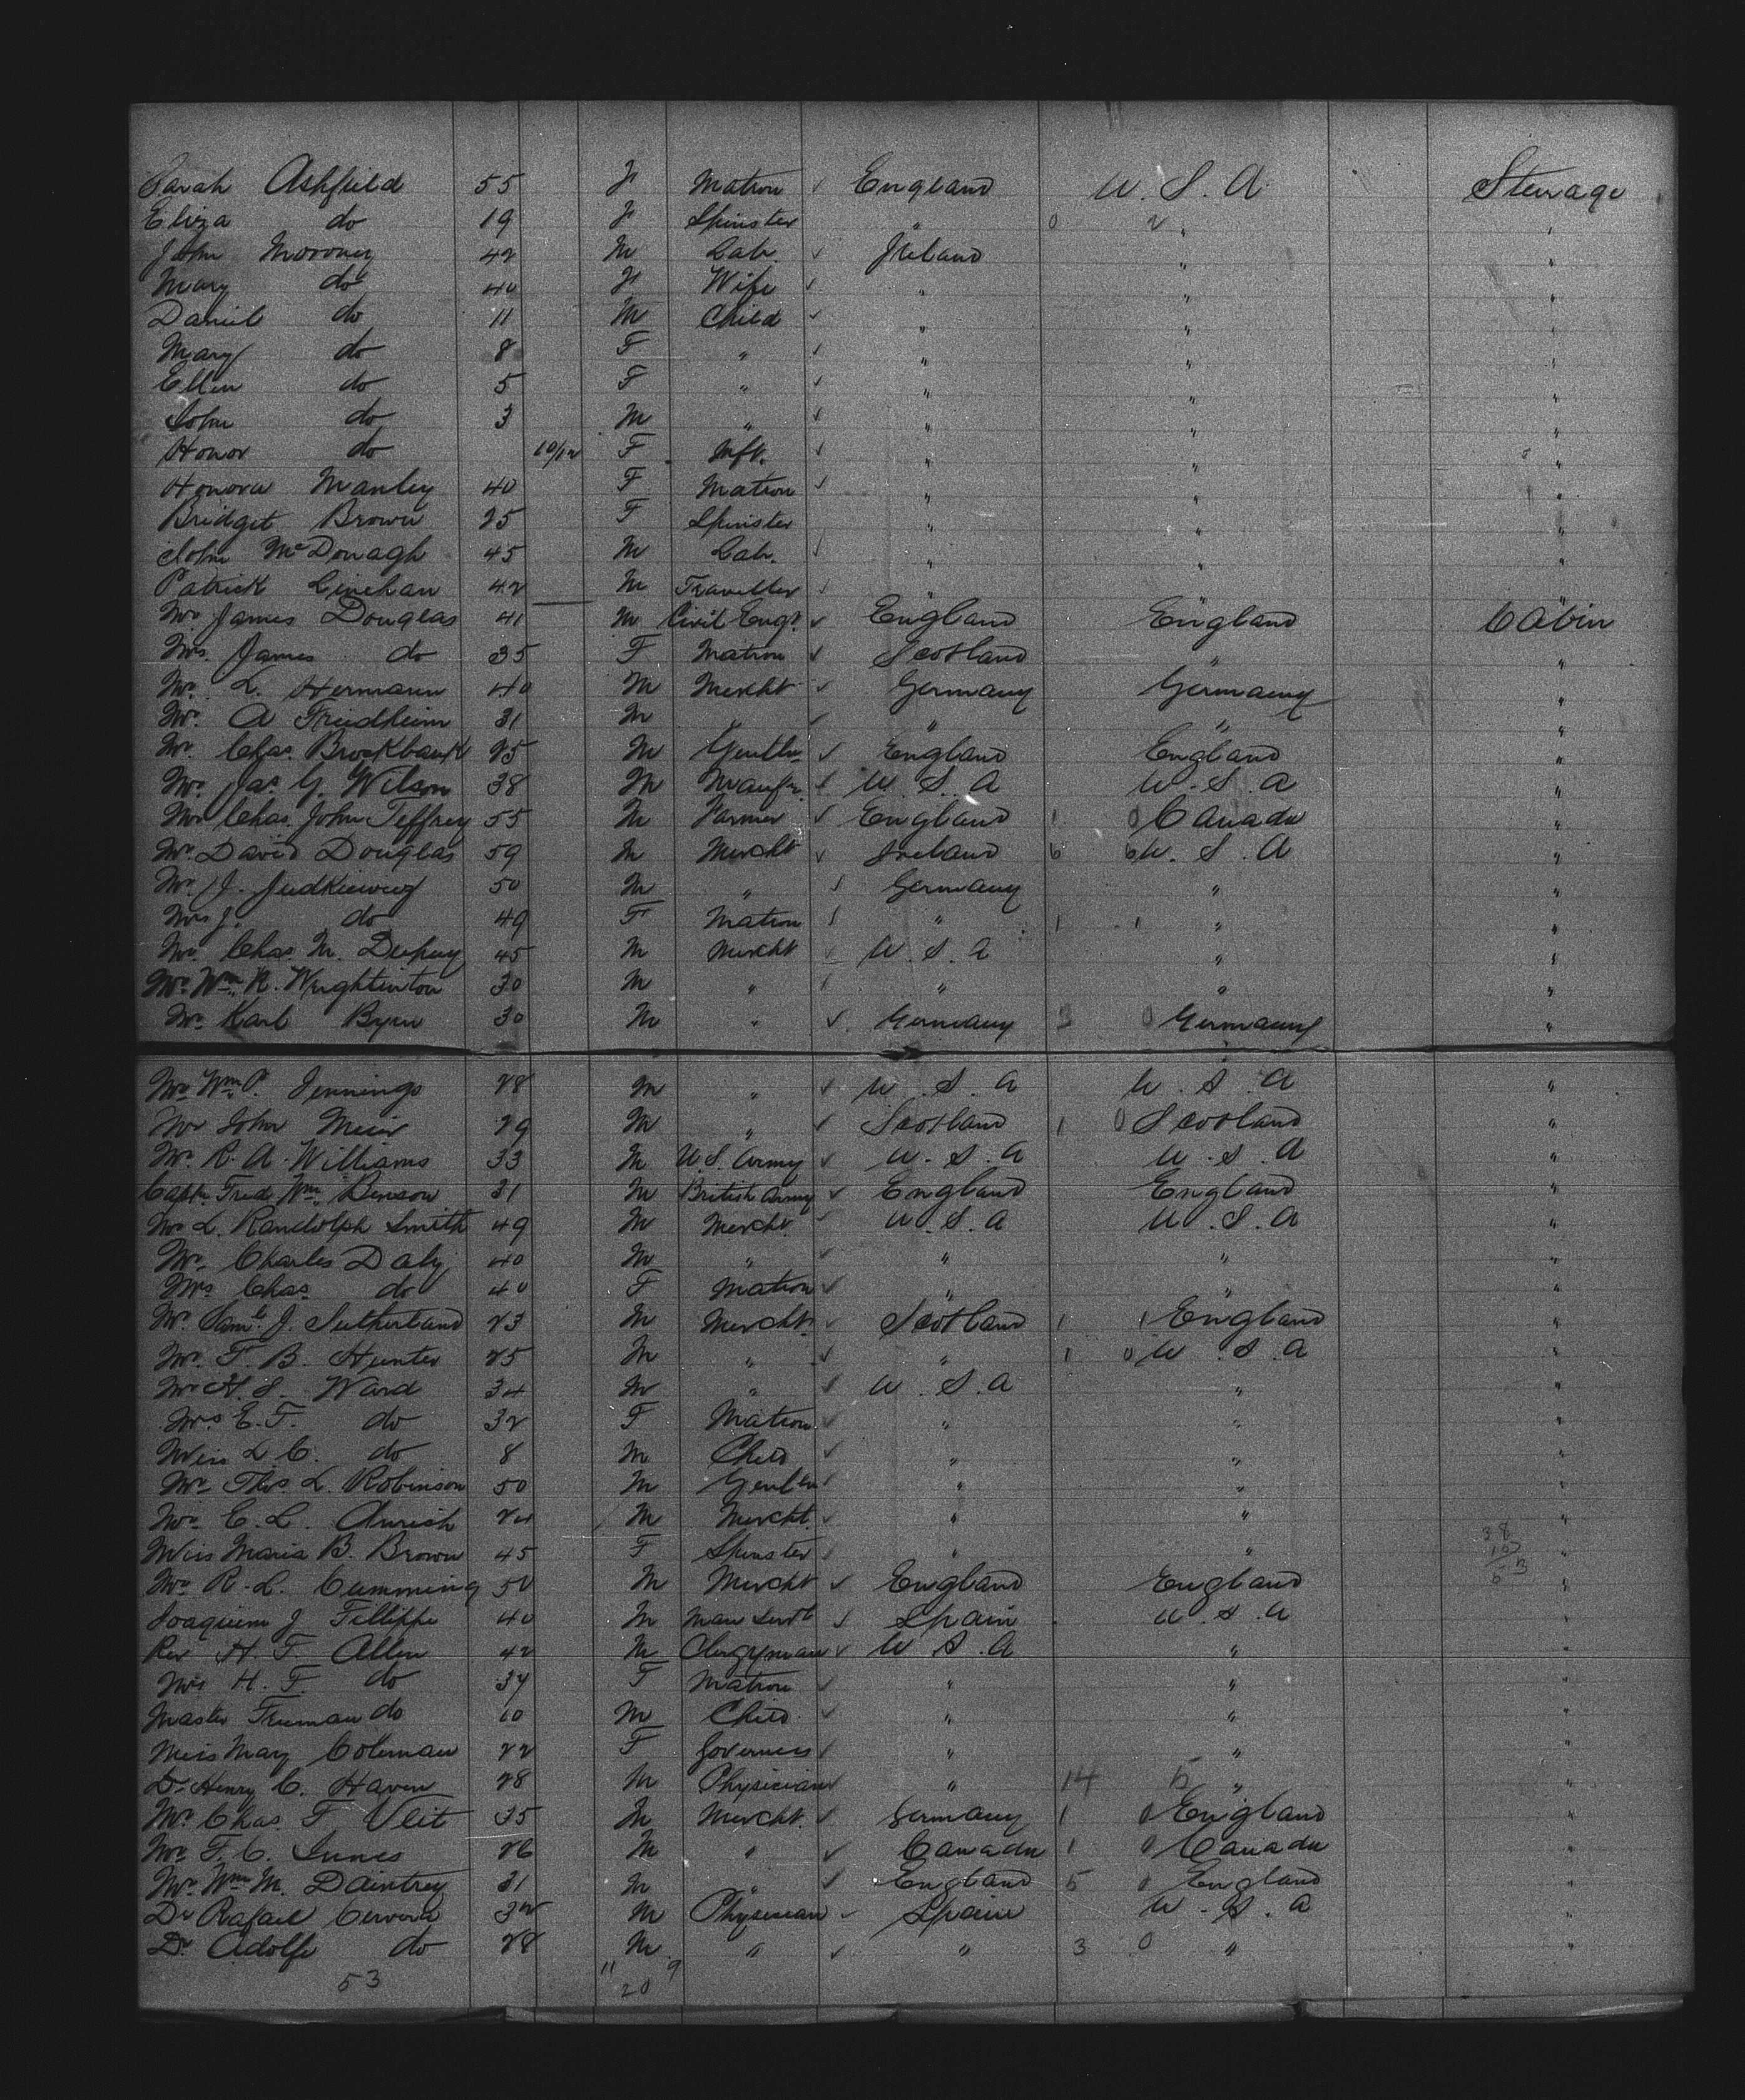 Sarah Ashfield 55 F Matron ✓ England U.S.A. Steerage
Eliza do 19 F Spinster " 0 2 " "
John Moroney 42 M Lab. ✓ Ireland " "
Mary do 40 F Wife ✓ " " "
Daniel do 11 M Child ✓ " " "
Mary do 8 F " ✓ " " "
Ellen do 5 F " ✓ " " "
John do 3 M " ✓ " " "
Honor do 10/12 F Inft. ✓ " " "
Honora Manley 40 F Matron ✓ " " "
Bridget Brown 25 F Spinster " " "
John McDonagh 45 M Lab. ✓ " " "
Patrick Linehan 42 M Traveller ✓ " " "
Mr James Douglas 41 M Civil Engr. ✓ England England Cabin
Mrs. James do 35 F Matron ✓ Scotland " "
Mr. L. Hermann 40 M Mercht ✓ Germany Germany "
Mr. A Friedheim 31 M " ✓ " " "
Mr. Chas. Brockbank 25 M Gentln ✓ England England "
Mr. Jas. G. Wilson 38 M Manufr. ✓ U.S.A U.S.A "
Mr Chas. John Jeffrey 55 M Farmer ✓ England 1 0 Canada "
Mr David Douglas 59 M Mercht ✓ Ireland 6 6 U.S.A "
Mr. J. 50 M " ✓ Germany " "
Mrs J. do 49 F Matron ✓ " 1 1 " "
Mr. Chas. M. Depuy 45 M Mercht ✓ U.S.A " "
Mr. Wm. R. Wrightinton 30 M " ✓ " " "
Mr Karl 30 M " ✓ Germany 3 0 Germany "
Mr Wm P. Jennings 28 M " ✓ U.S.A U.S.A "
Mr John Muir 29 M " ✓ Scotland 1 0 Scotland "
Mr. R. A. Williams 33 M U.S. Army ✓ U.S.A U.S.A "
Captn Fred Wm Benson 31 M British Army ✓ England England "
Mr L. Randolph Smith 49 M Mercht. ✓ U.S.A U.S.A "
Mr. Charles Daly 40 M " ✓ " " "
Mrs Chas do 40 F Matron ✓ " " "
Mr. Saml. J. Sutherland 23 M Mercht ✓ Scotland 1 1 England "
Mr. F. B. Hunter 25 M " ✓ " 1 0 U.S.A "
Mr H. S. Ward 34 M " ✓ U.S.A " "
Mrs E. F. do 32 F Matron ✓ " " "
Miss L C. do 8 M Child ✓ " " "
Mr Thos. L. Robinson 50 M Gentln ✓ " " "
Mr. C. L. 24 M Mercht. ✓ " " "
Miss Maria B. Brown 45 F Spinster ✓ " " "
Mr R. L. Cumming 50 M Mercht ✓ England England "
Joaquim J Fillippe 40 M Man Servt ✓ Spain U.S.A "
Rev H. F. Allen 42 M Clergyman ✓ U.S.A " "
Mrs H. F. do 34 F Matron ✓ " " "
Master Freeman do 10 M Child ✓ " " "
Miss May Coleman 22 F Governess ✓ " " "
Dr Henry C. Haven 28 M Physician ✓ " 14 5 " "
Mr Chas. F Veit 35 M Mercht. ✓ Germany 1 0 England "
Mr F. C. Innes 26 M " ✓ Canada 1 0 Canada "
Mr. Wm M. Daintrey 31 M " ✓ England 5 0 England "
Dr Rafael Cervera 32 M Physician ✓ Spain U.S.A "
Dr Adolfo do 28 M " ✓ " 3 0 " "
53 11 9
20